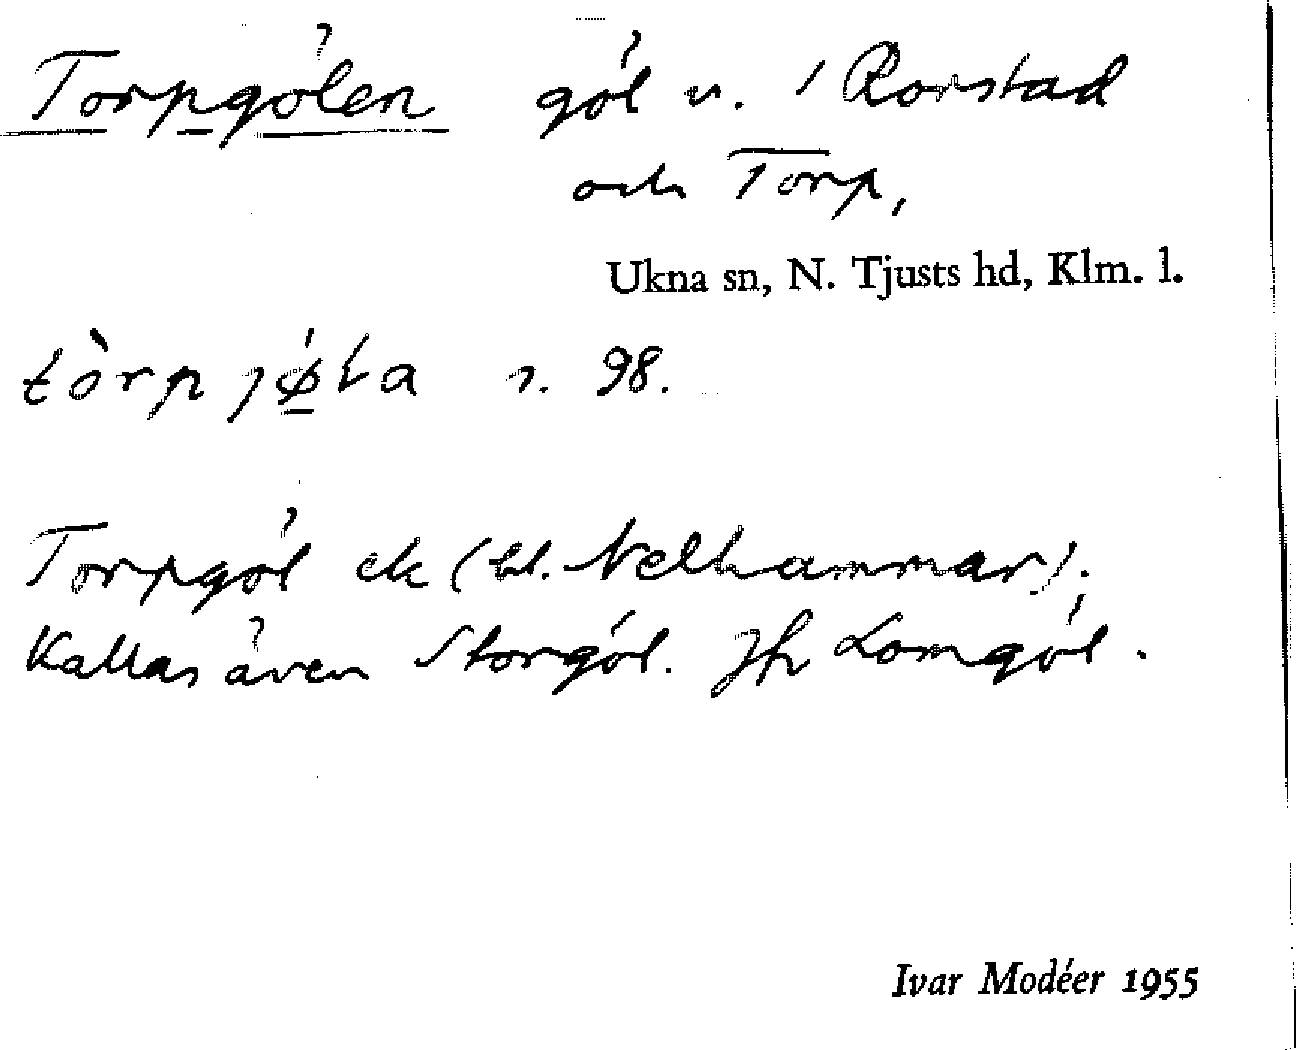 Torpgölen göl u. / Rorstad
och Torp,
Ukna sn, N. Tjusts hd, Klm. l.
tòrp jǿla s. 98.
Torpgöl ek (bl. Nelhammar);
Kallas även Storgöl. Jfr Lomgöl.
Ivar Modéer 1955